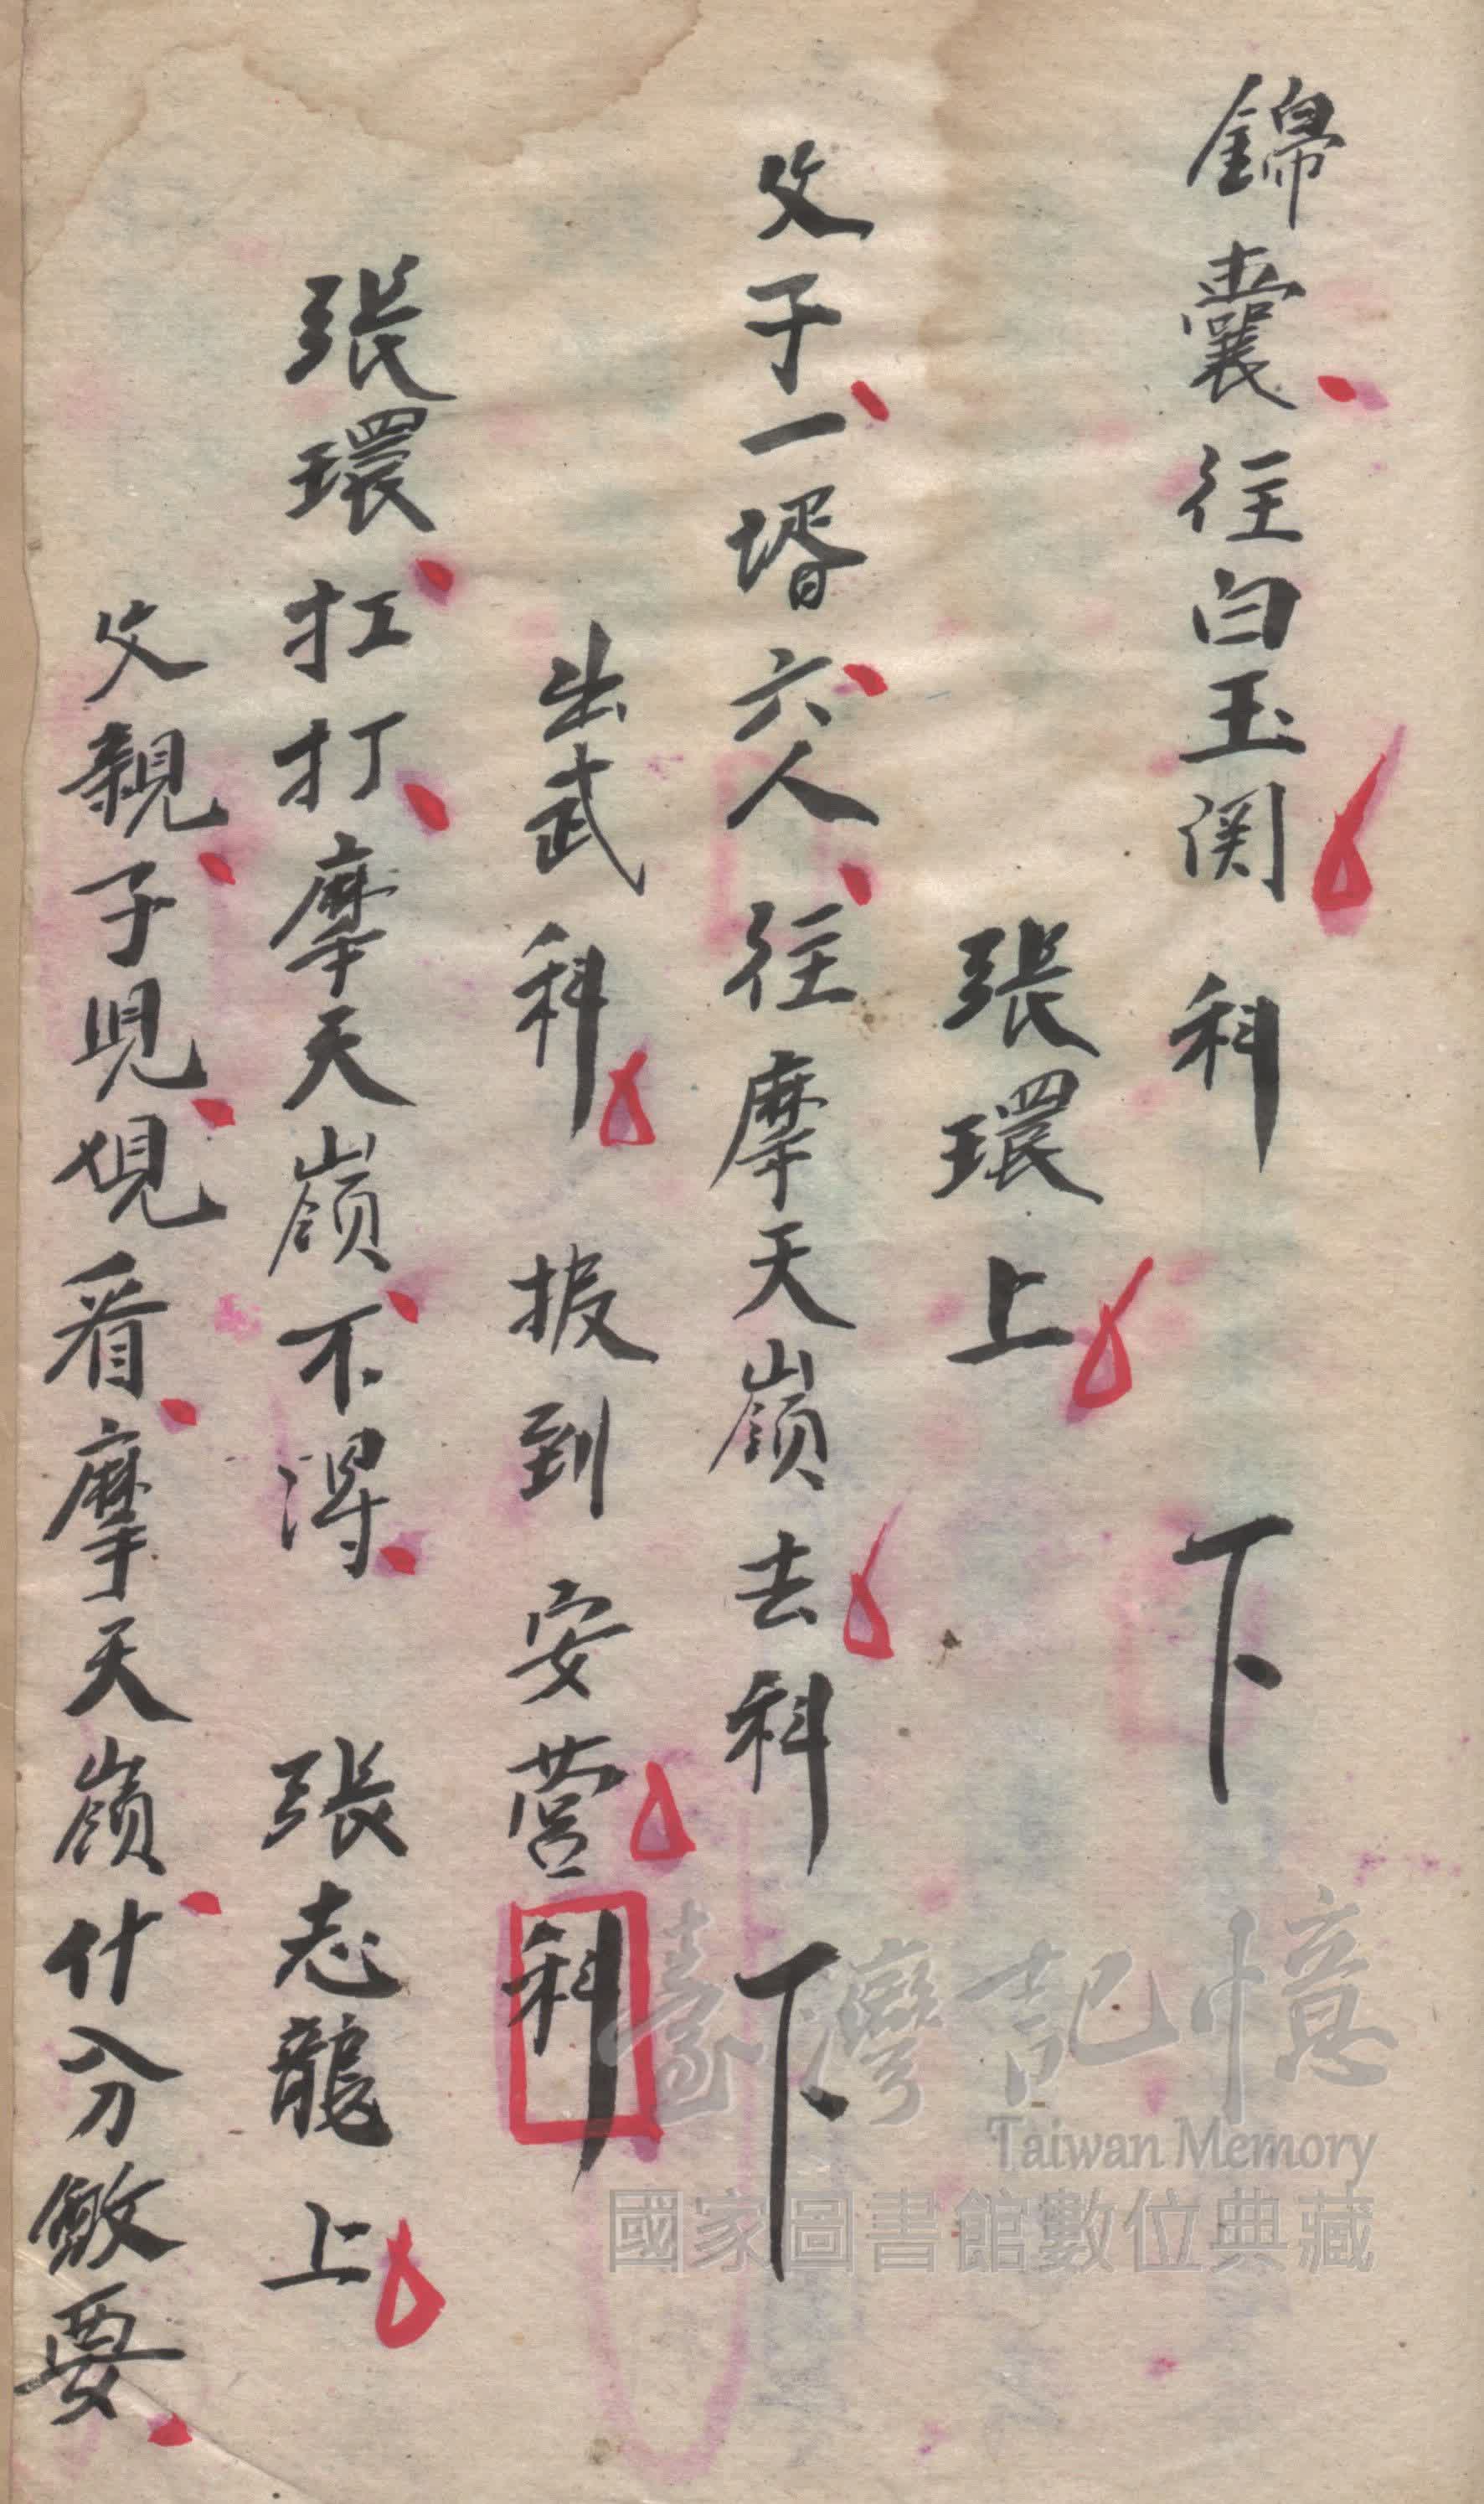 錦囊往白玉関科 下
張環上
父子一壻六人往摩天嶺去科 下
出武科 报到安营科
張環扛打摩天嶺不淂 張志龍上
父親子児覌看摩天嶺什分敏要
臺灣記憶
Taiwan Memory
國家圖書館數位典藏